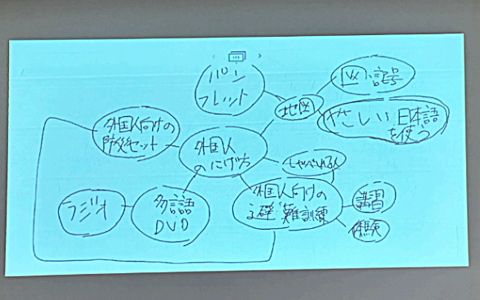 パン
フレット
地図
記号
やさしい日本語
を使う
外国人向けの
防災セット
外国人
のにげ方
しゃべれる人
ラジオ
多言語
DVD
外国人向けの
避難訓練
講習
体験